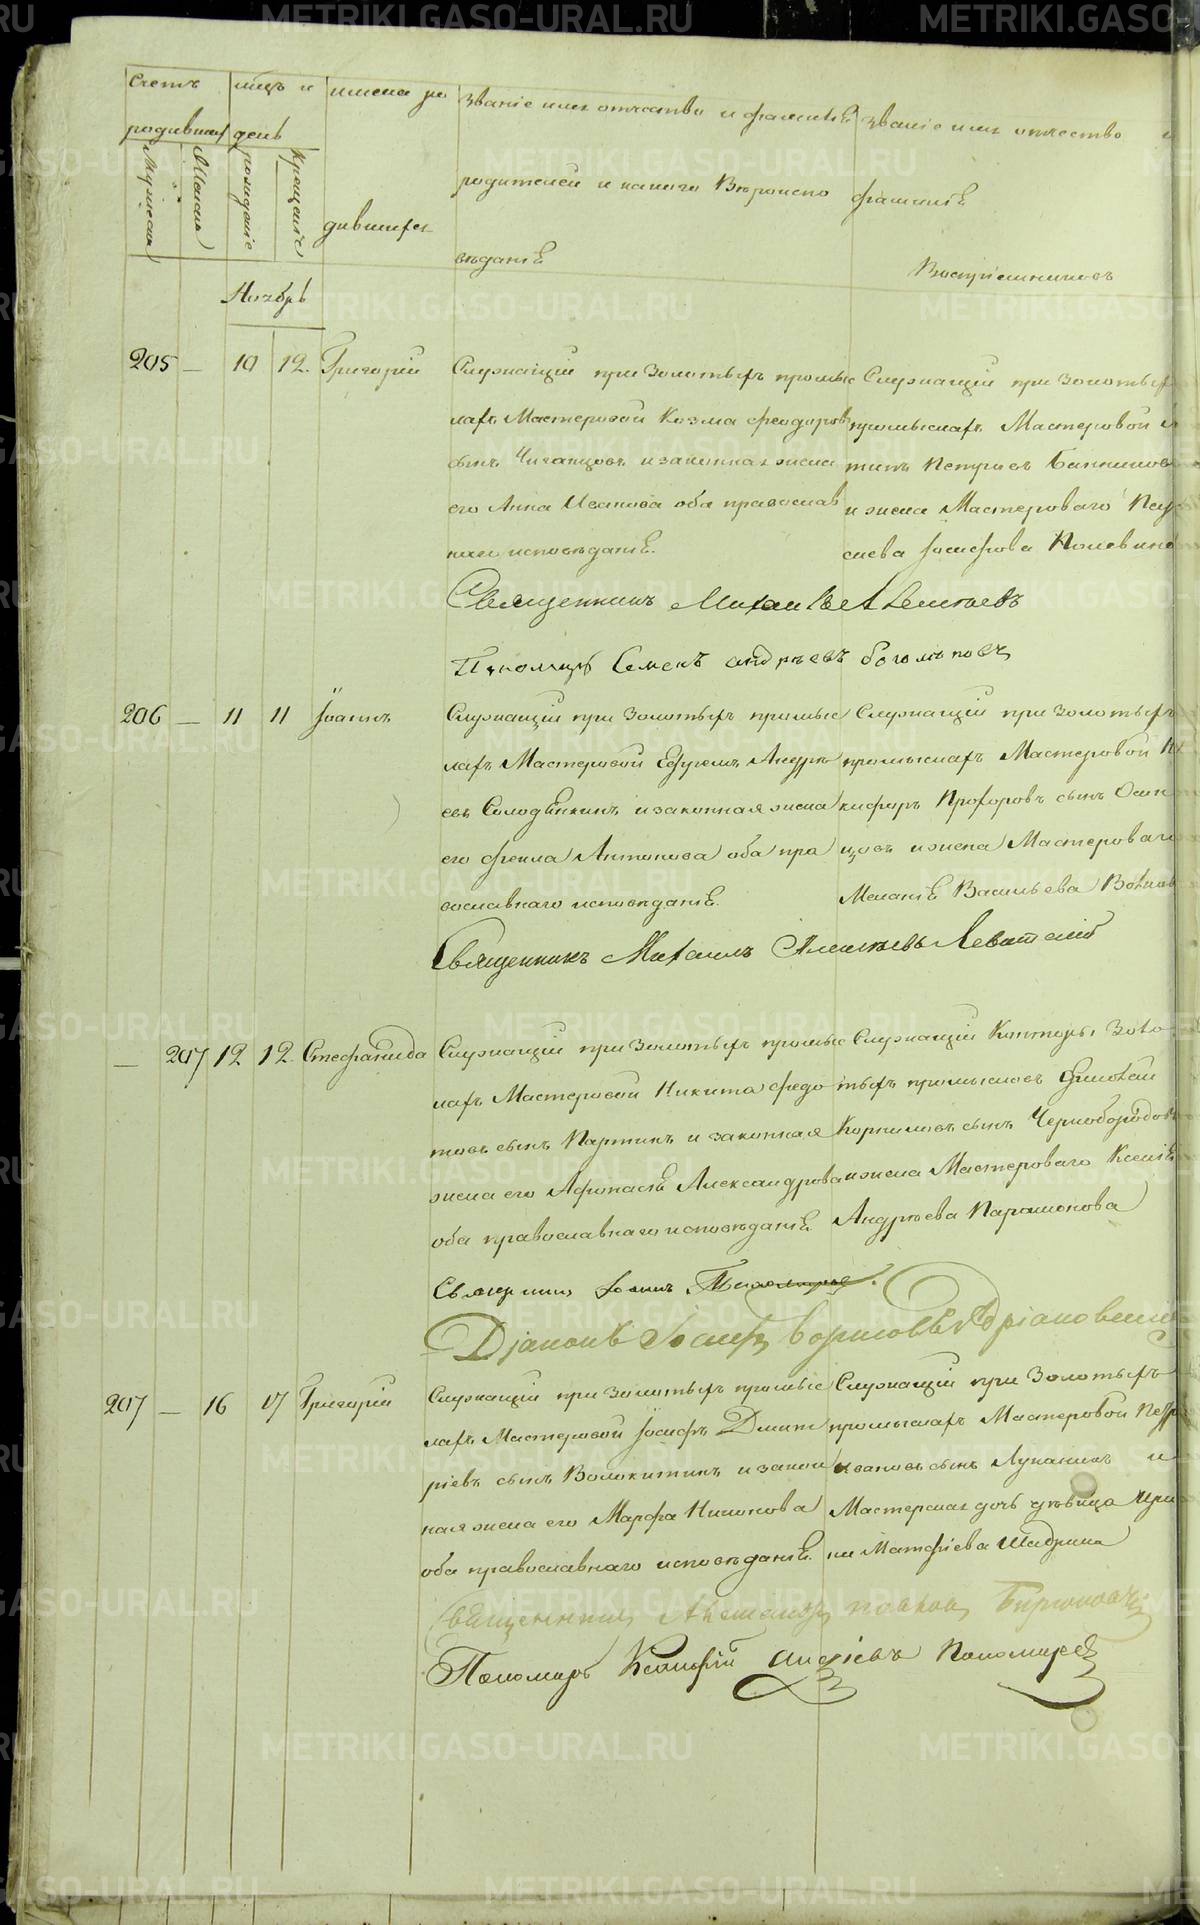 METRIKI.GASO-URAL.RU
Счетъ
родившихся
Мужеска
Женска
мѣсяцъ и
день
рожденіе
крещеніе
имена ро
дившихся
Званіе имя отчество и фамилія
родителей и какого Вѣроиспо
вѣданія
Званіе имя отчество и
фамилія
Воспріемниковъ
Ноябрь
205 — 10 12. Григорій
Служащій при Золотыхъ промыс
лахъ Мастеровой Козма Феодоровъ
сынъ и законная жена
его Анна Иванова оба православ
наго исповѣданія.
Служащій при Золотыхъ
промыслахъ Мастеровой
Петровъ
и жена Мастероваго
Іосифова
Священникъ Михаилъ
Пономарь Семенъ Андреевъ Богомоловъ
206 — 11 11 Іоаннъ
Служащій при Золотыхъ промыс
лахъ Мастеровой Ефремъ Андре
евъ Солодянкинъ и законная жена
его Фекла Антонова оба пра
вославнаго исповѣданія.
Служащій при Золотыхъ
промыслахъ Мастеровой Ни
кифоръ Прохоровъ сынъ Осин
цовъ и жена Мастероваго
Меланія Васильева
Священникъ Михаилъ Алексѣевъ Левитскій
— 207 12 12. Стефанида
Служащій при Золотыхъ промыс
лахъ Мастеровой Никита Федо
товъ сынъ Партинъ и законная
жена его Афонасія Александрова
оба православнаго исповѣданія
Служащій Конторы Золо
тыхъ промысловъ
Корниловъ сынъ Чернобородовъ
и жена Мастероваго Ксенія
Андреева Парамонова
Священникъ Іоаннъ
Діаконъ Іосифъ Борисовъ Адріановскій
207 — 16 17 Григорій
Служащій при Золотыхъ промыс
лахъ Мастеровой Іосифъ Дмит
ріевъ сынъ Волокитинъ и закон
ная жена его Марфа Никонова
оба православнаго исповѣданія.
Служащій при Золотыхъ
промыслахъ Мастеровой Петръ
Ивановъ сынъ Луканинъ и
Мастерская дочь дѣвица Ири
на Матфіева Шадрина
Священникъ Бирюковъ
Пономарь Ксенофонтъ Андреевъ Пономаревъ